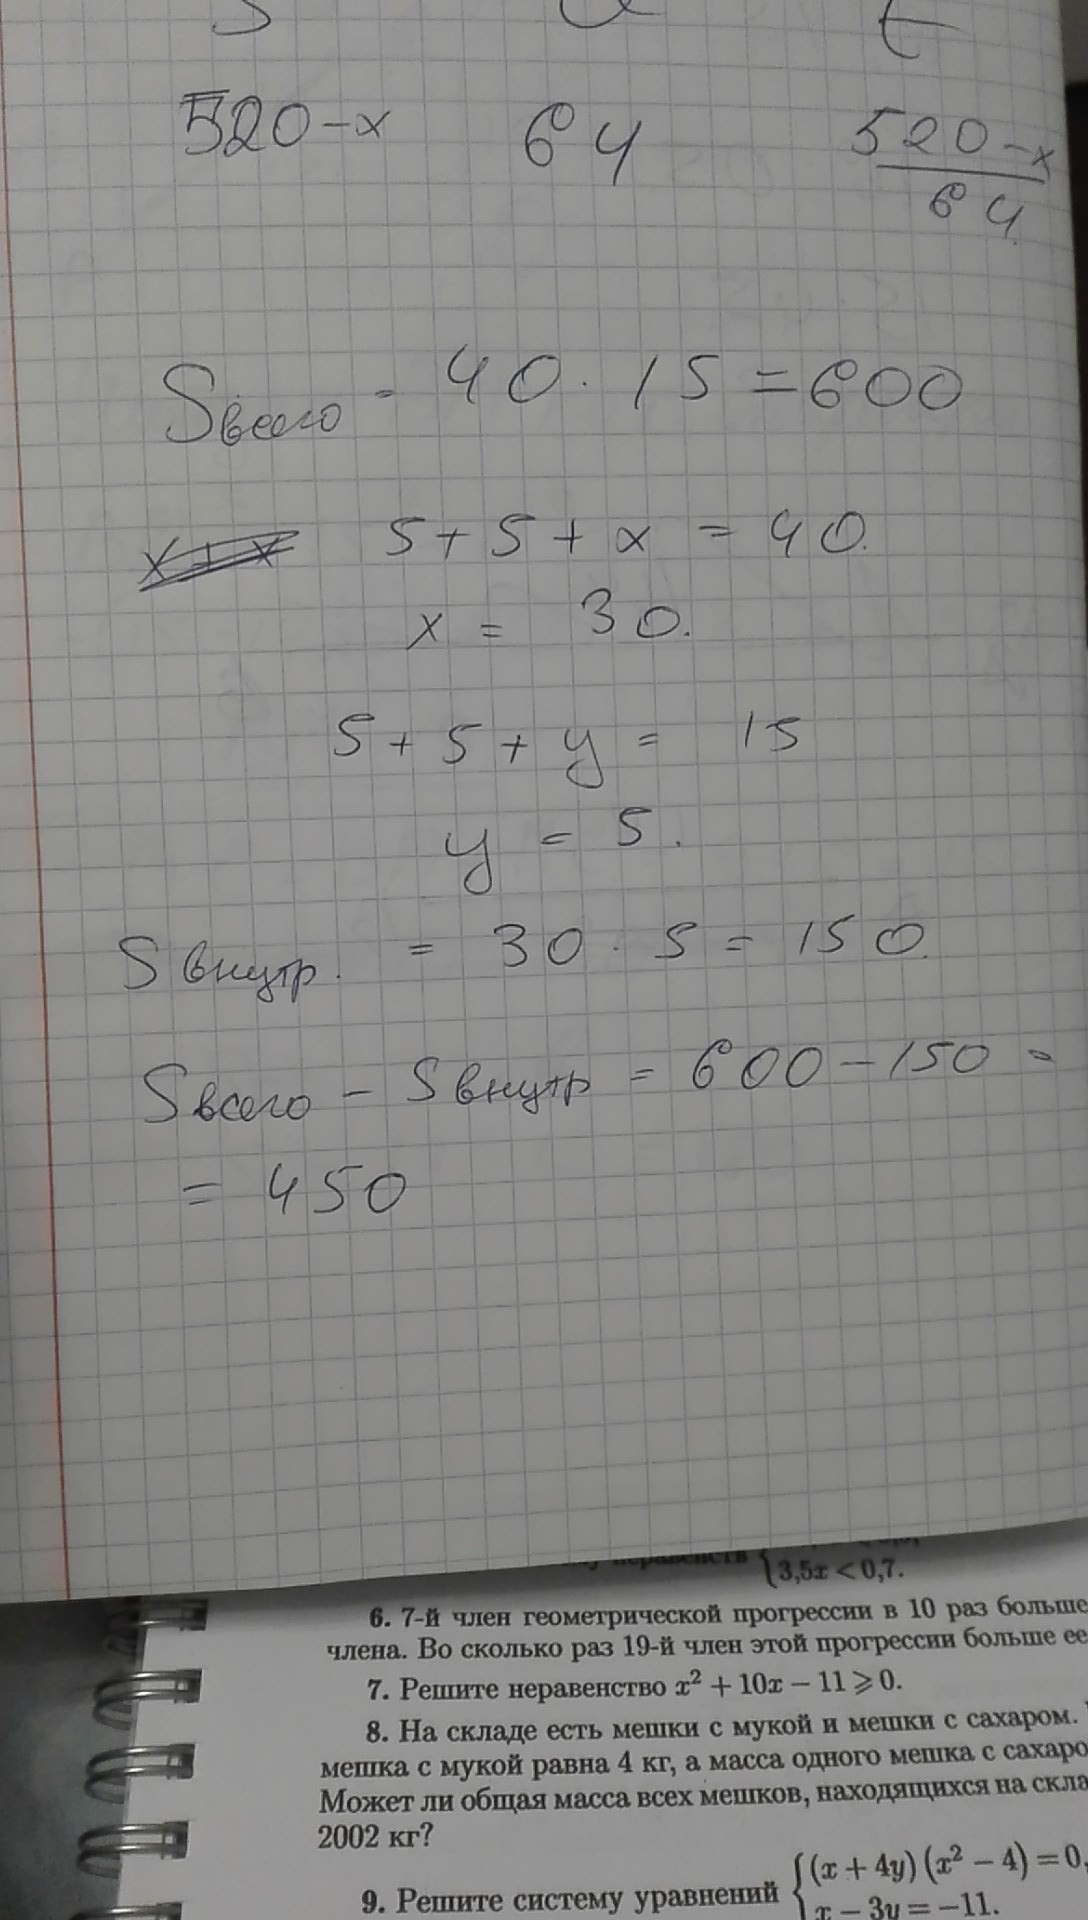 S t
520-x 64 520-x/64
Sвсего = 40 · 15 = 600
5 + 5 + x = 40.
x = 30.
5 + 5 + y = 15
y = 5.
S внутр. = 30 · 5 = 150.
Sвсего - Sвнутр = 600 - 150 =
= 450
неравенств
{3,5x < 0,7.
6. 7-й член геометрической прогрессии в 10 раз больше
члена. Во сколько раз 19-й член этой прогрессии больше ее
7. Решите неравенство x² + 10x − 11 ⩾ 0.
8. На складе есть мешки с мукой и мешки с сахаром.
мешка с мукой равна 4 кг, а масса одного мешка с сахаро
Может ли общая масса всех мешков, находящихся на скла
2002 кг?
9. Решите систему уравнений {(x + 4y)(x² − 4) = 0,
x − 3y = −11.